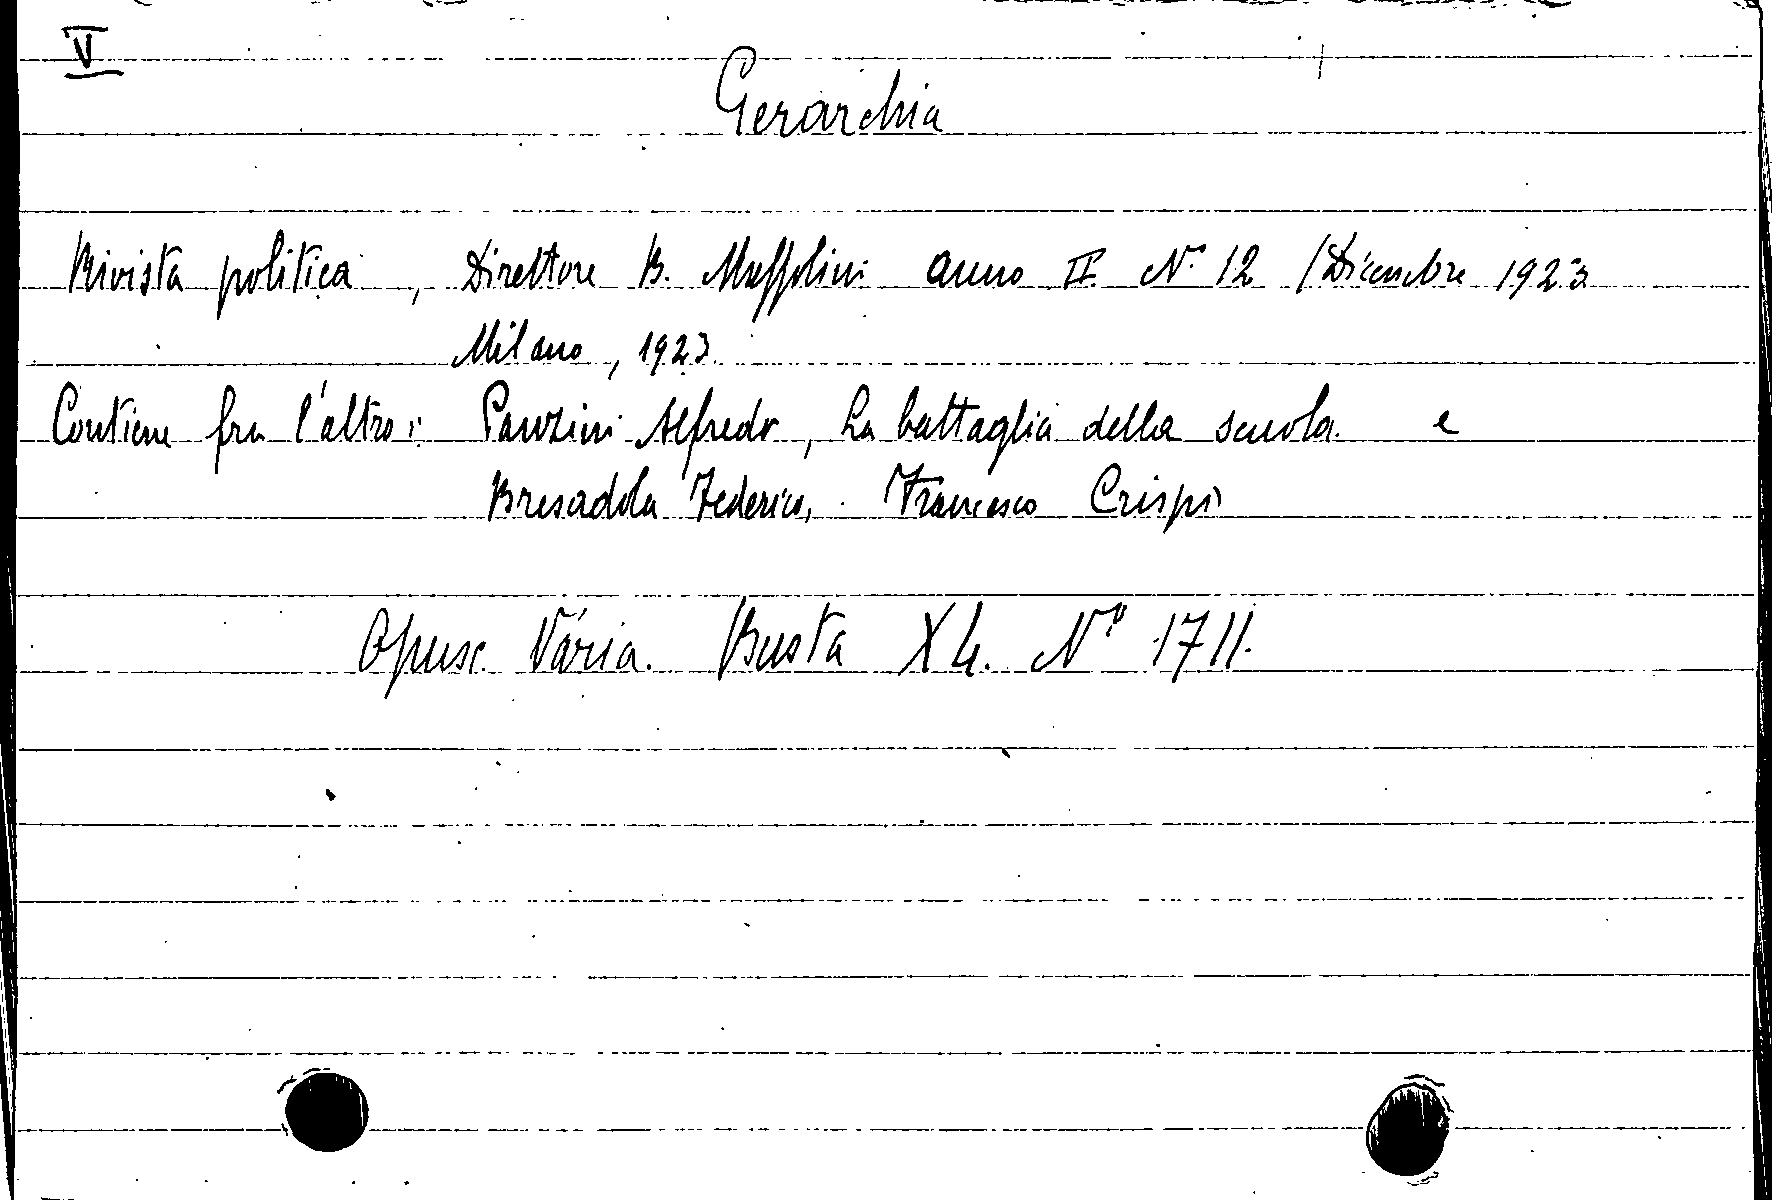 V
Gerarchia
Rivista politica, Direttore B. Mussolini anno II N. 12 /Dicembre 1923
Milano, 1923.
Contiene fra l'altro: Panzini Alfredo, La battaglia della scuola. e
Bresadola Federico, Francesco Crispi
Opusc. Varia. Busta X4. Nº 1711.